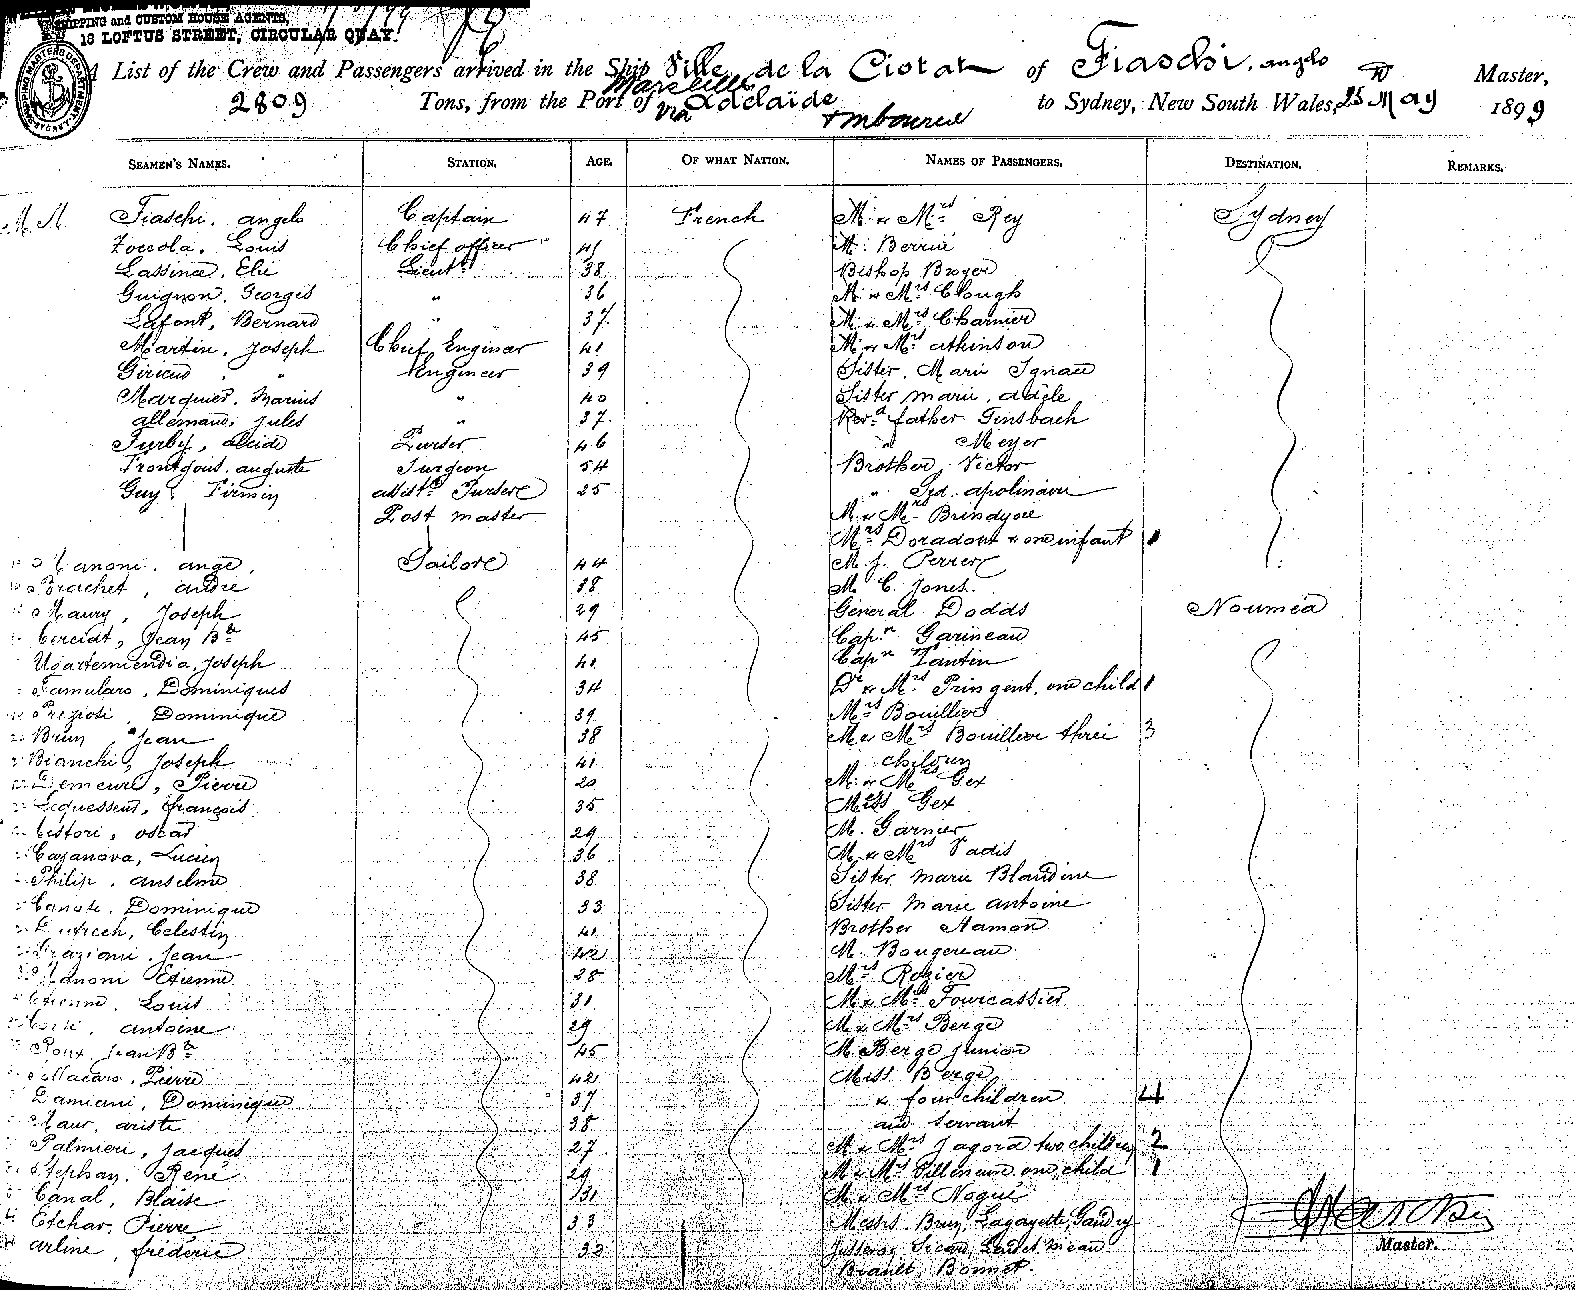 SHIPPING and CUSTOM HOUSE AGENTS,
18 LOFTUS STREET, CIRCULAR QUAY.
A List of the Crew and Passengers arrived in the Ship Ville de la Ciotat of Fiaschi, angelo Master,
2809 Tons, from the Port of Marseille via Adelaide to Sydney, New South Wales, 25 May 1899
SEAMEN'S NAMES. STATION. AGE. OF WHAT NATION. NAMES OF PASSENGERS. DESTINATION. REMARKS.
M. M. Fiaschi. angelo Captain 47 French M. & Mrs Rey Sydney
Zoccola. Louis Chief officer 41 M. Berrié
Lassina, Elie Lieut. 38 Bishop Broyer
Guignon, Georges " 36 M. & Mrs Clough
Lafont, Bernard " 37 M. & Mrs Charnier
Martin, Joseph Chief Engineer 41 M. & Mrs atkinson
Giricus " Engineer 39 Sister. Marie Ignace
Marquies. Marius " 40 Sister marie. adèle
allemand, Jules " 37 Revd father Ginsbach
Turby, alcide Purser 46 " Meyer
Frontgous. auguste Surgeon 54 Brother, Victor
Guy, Firmin assistt Pursere 25 " apolinaire
Post master M. & Mrs Brindjou
Mrs Doradour & one infant 1
Manoni. ange, Sailore 44 M. J. Perrier
Brachet, andré 38 M C. Jones.
Maury, Joseph 29 General Dodds Noumea
Cereidt, Jean Bte 45 Capn Garineau
Ugartemendia, Joseph 41 Capn Tantin
Famularo, Dominiques 34 Dr & Mrs Pringent, one child 1
Prezioti, Dominique 39 Mrs Bouillier
Brun, Jean 38 M. & Mrs Bouillier three 3
Bianchi, Joseph 41 children
Demeure, Pierre 20 M. & Mrs Gex
Lequessent, françois 35 Miss Gex
Cistori, oscar 29 M. Garnier
Casanova, Lucien 36 M. & Mrs Vadis
Philip. anselme 38 Sister marie Blandine
Canate. Dominique 33 Sister Marie antoine
Dutrech, Celestin 41 Brother Hamon
Graziani. Jean 42 M. Bougereau
Manoni Etienne 28 Mrs Rozier
Etienne. Louis 31 M. & Mrs Fourcassier
Corte. antoine 29 M. & Mrs Berge
Roux Jean Bte 45 M. Berge junior
Maccaro. Pierre 42 Miss Berge
Damiani, Dominique 37 & four children 4
Maur, ariste 38 and servant
Palmieri, Jacques 27 M & Mrs Jagora two children 2
Stephan. René 29 M & Mrs one child 1
Canal, Blaise 31 M & Mrs Nogué
Etchar. Pierre 33 Messrs. Brun, Lagayette, Gaudry
arline, fréderic 33 Sicard
Bonnot.
Master.